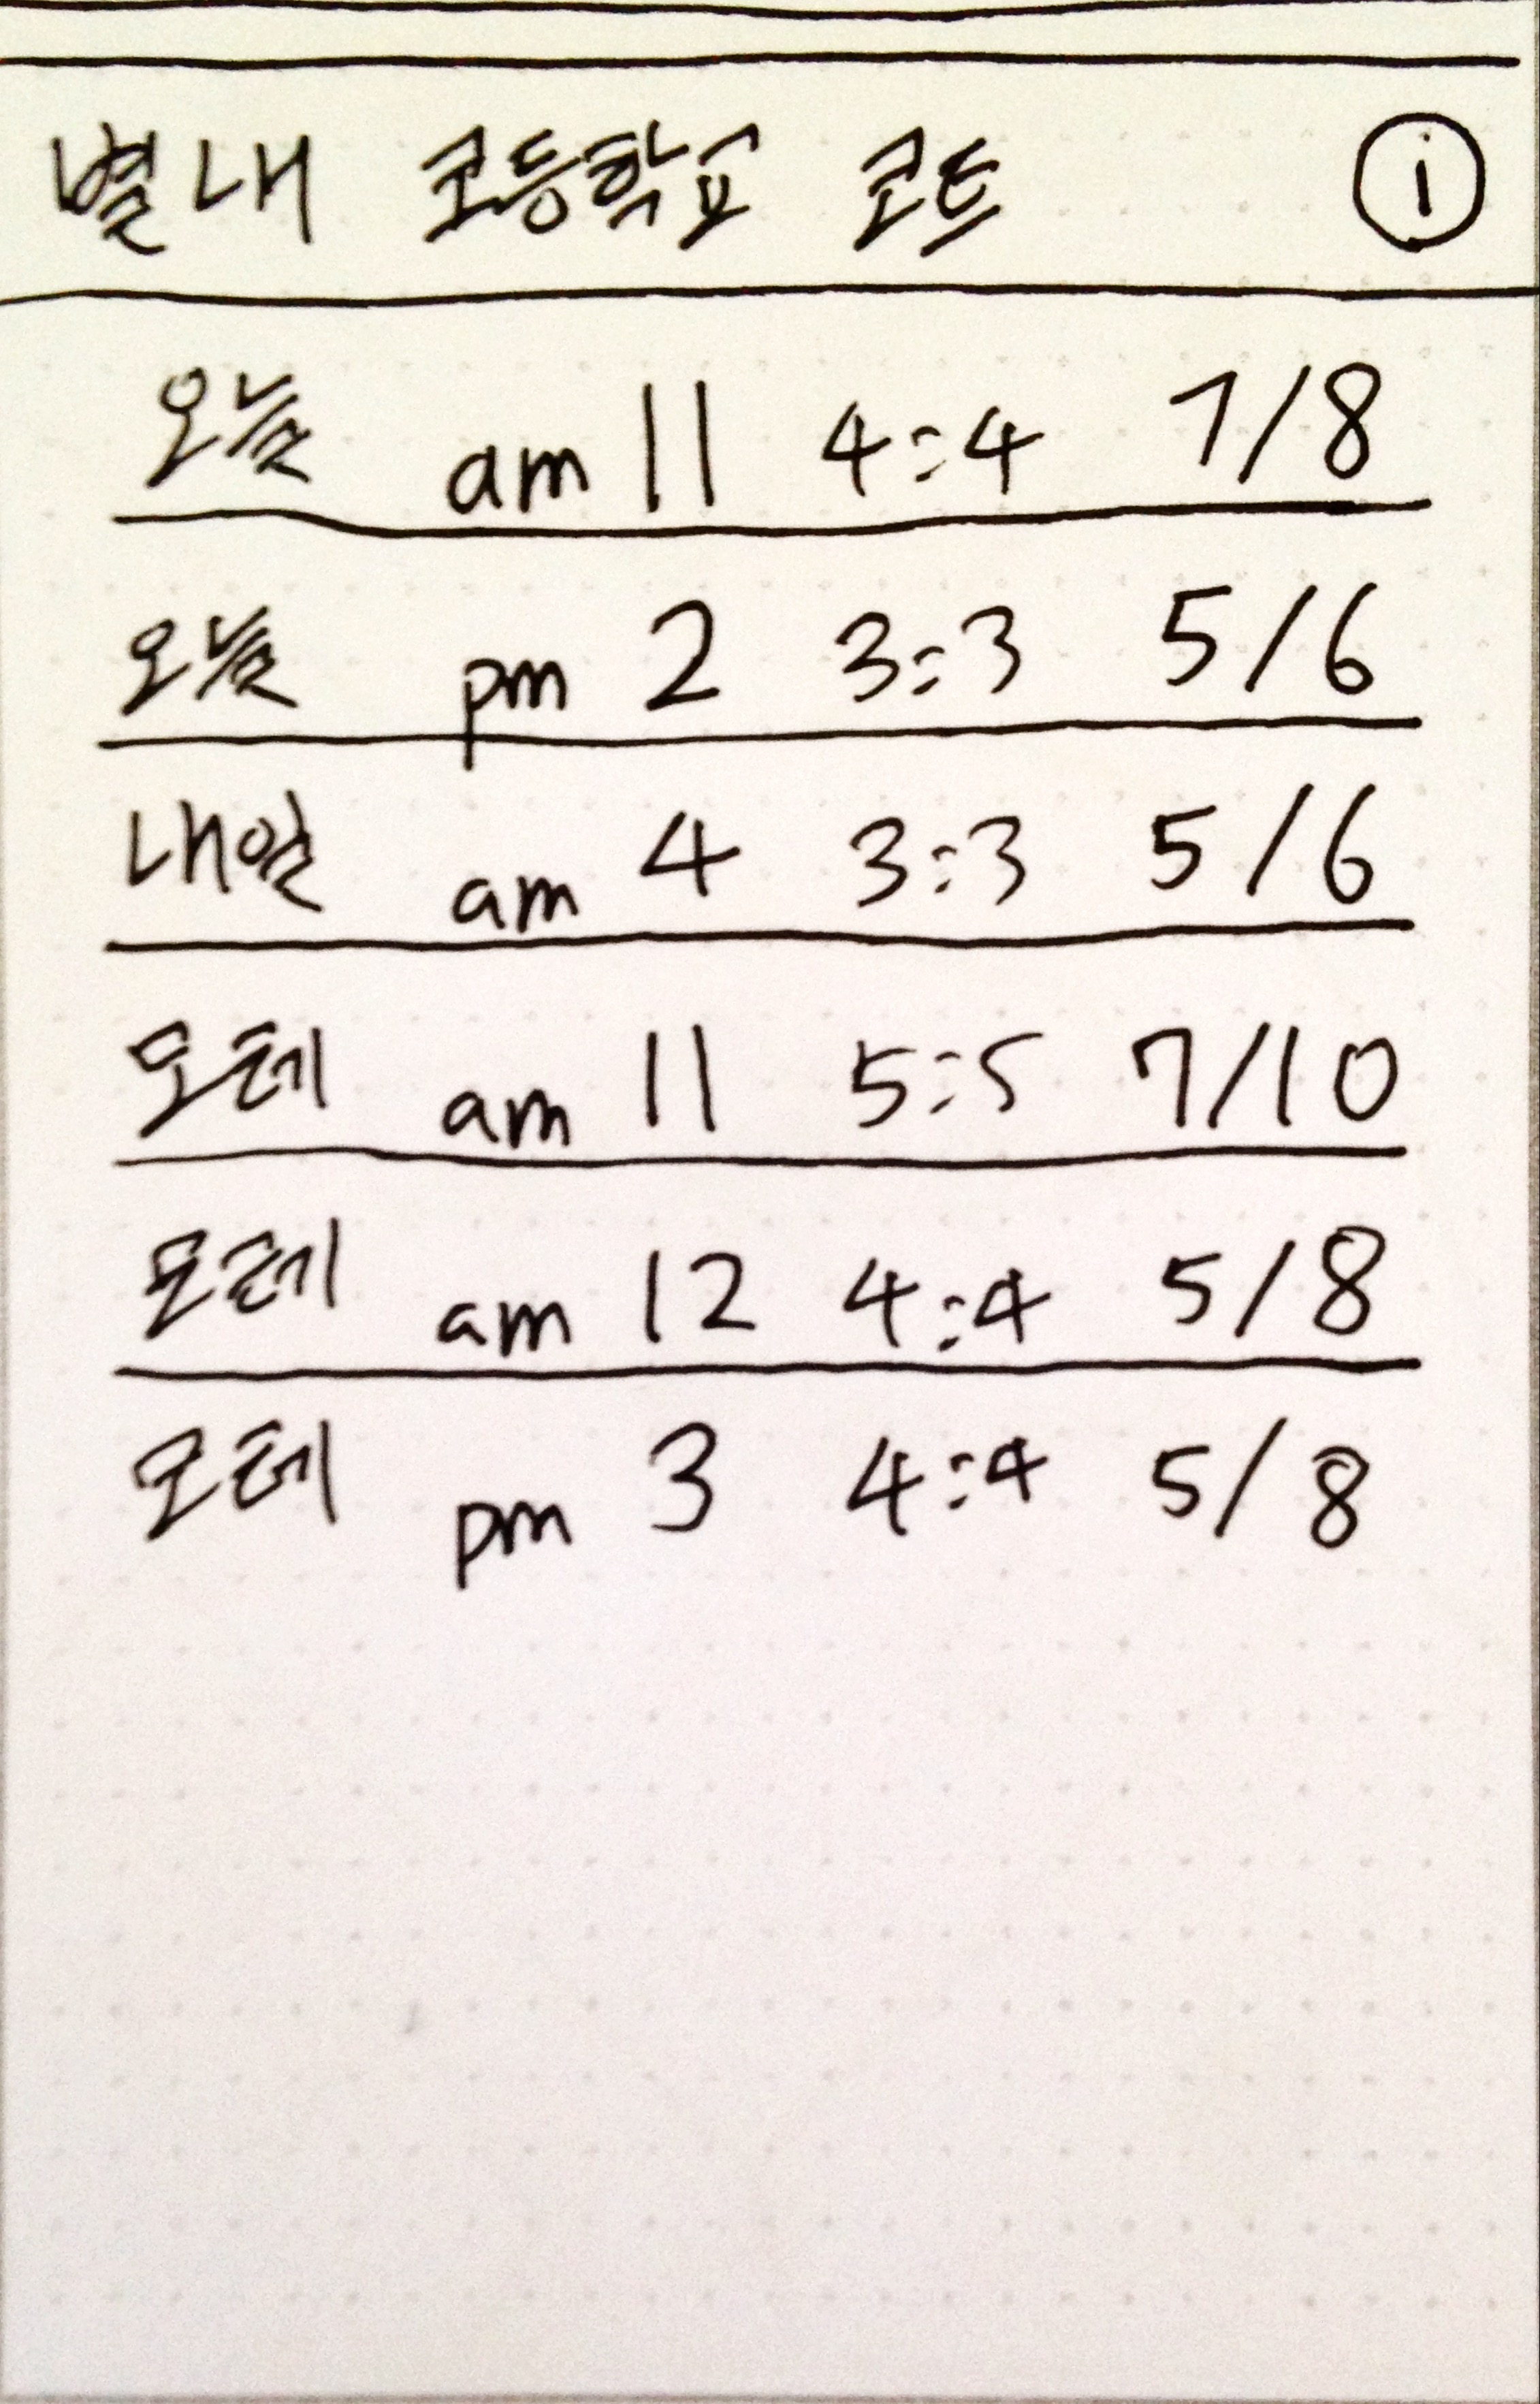 별내 고등학교 코트 i
오늘 am 11 4:4 7/8
오늘 pm 2 3:3 5/6
내일 am 4 3:3 5/6
모레 am 11 5:5 7/10
모레 am 12 4:4 5/8
모레 pm 3 4:4 5/8